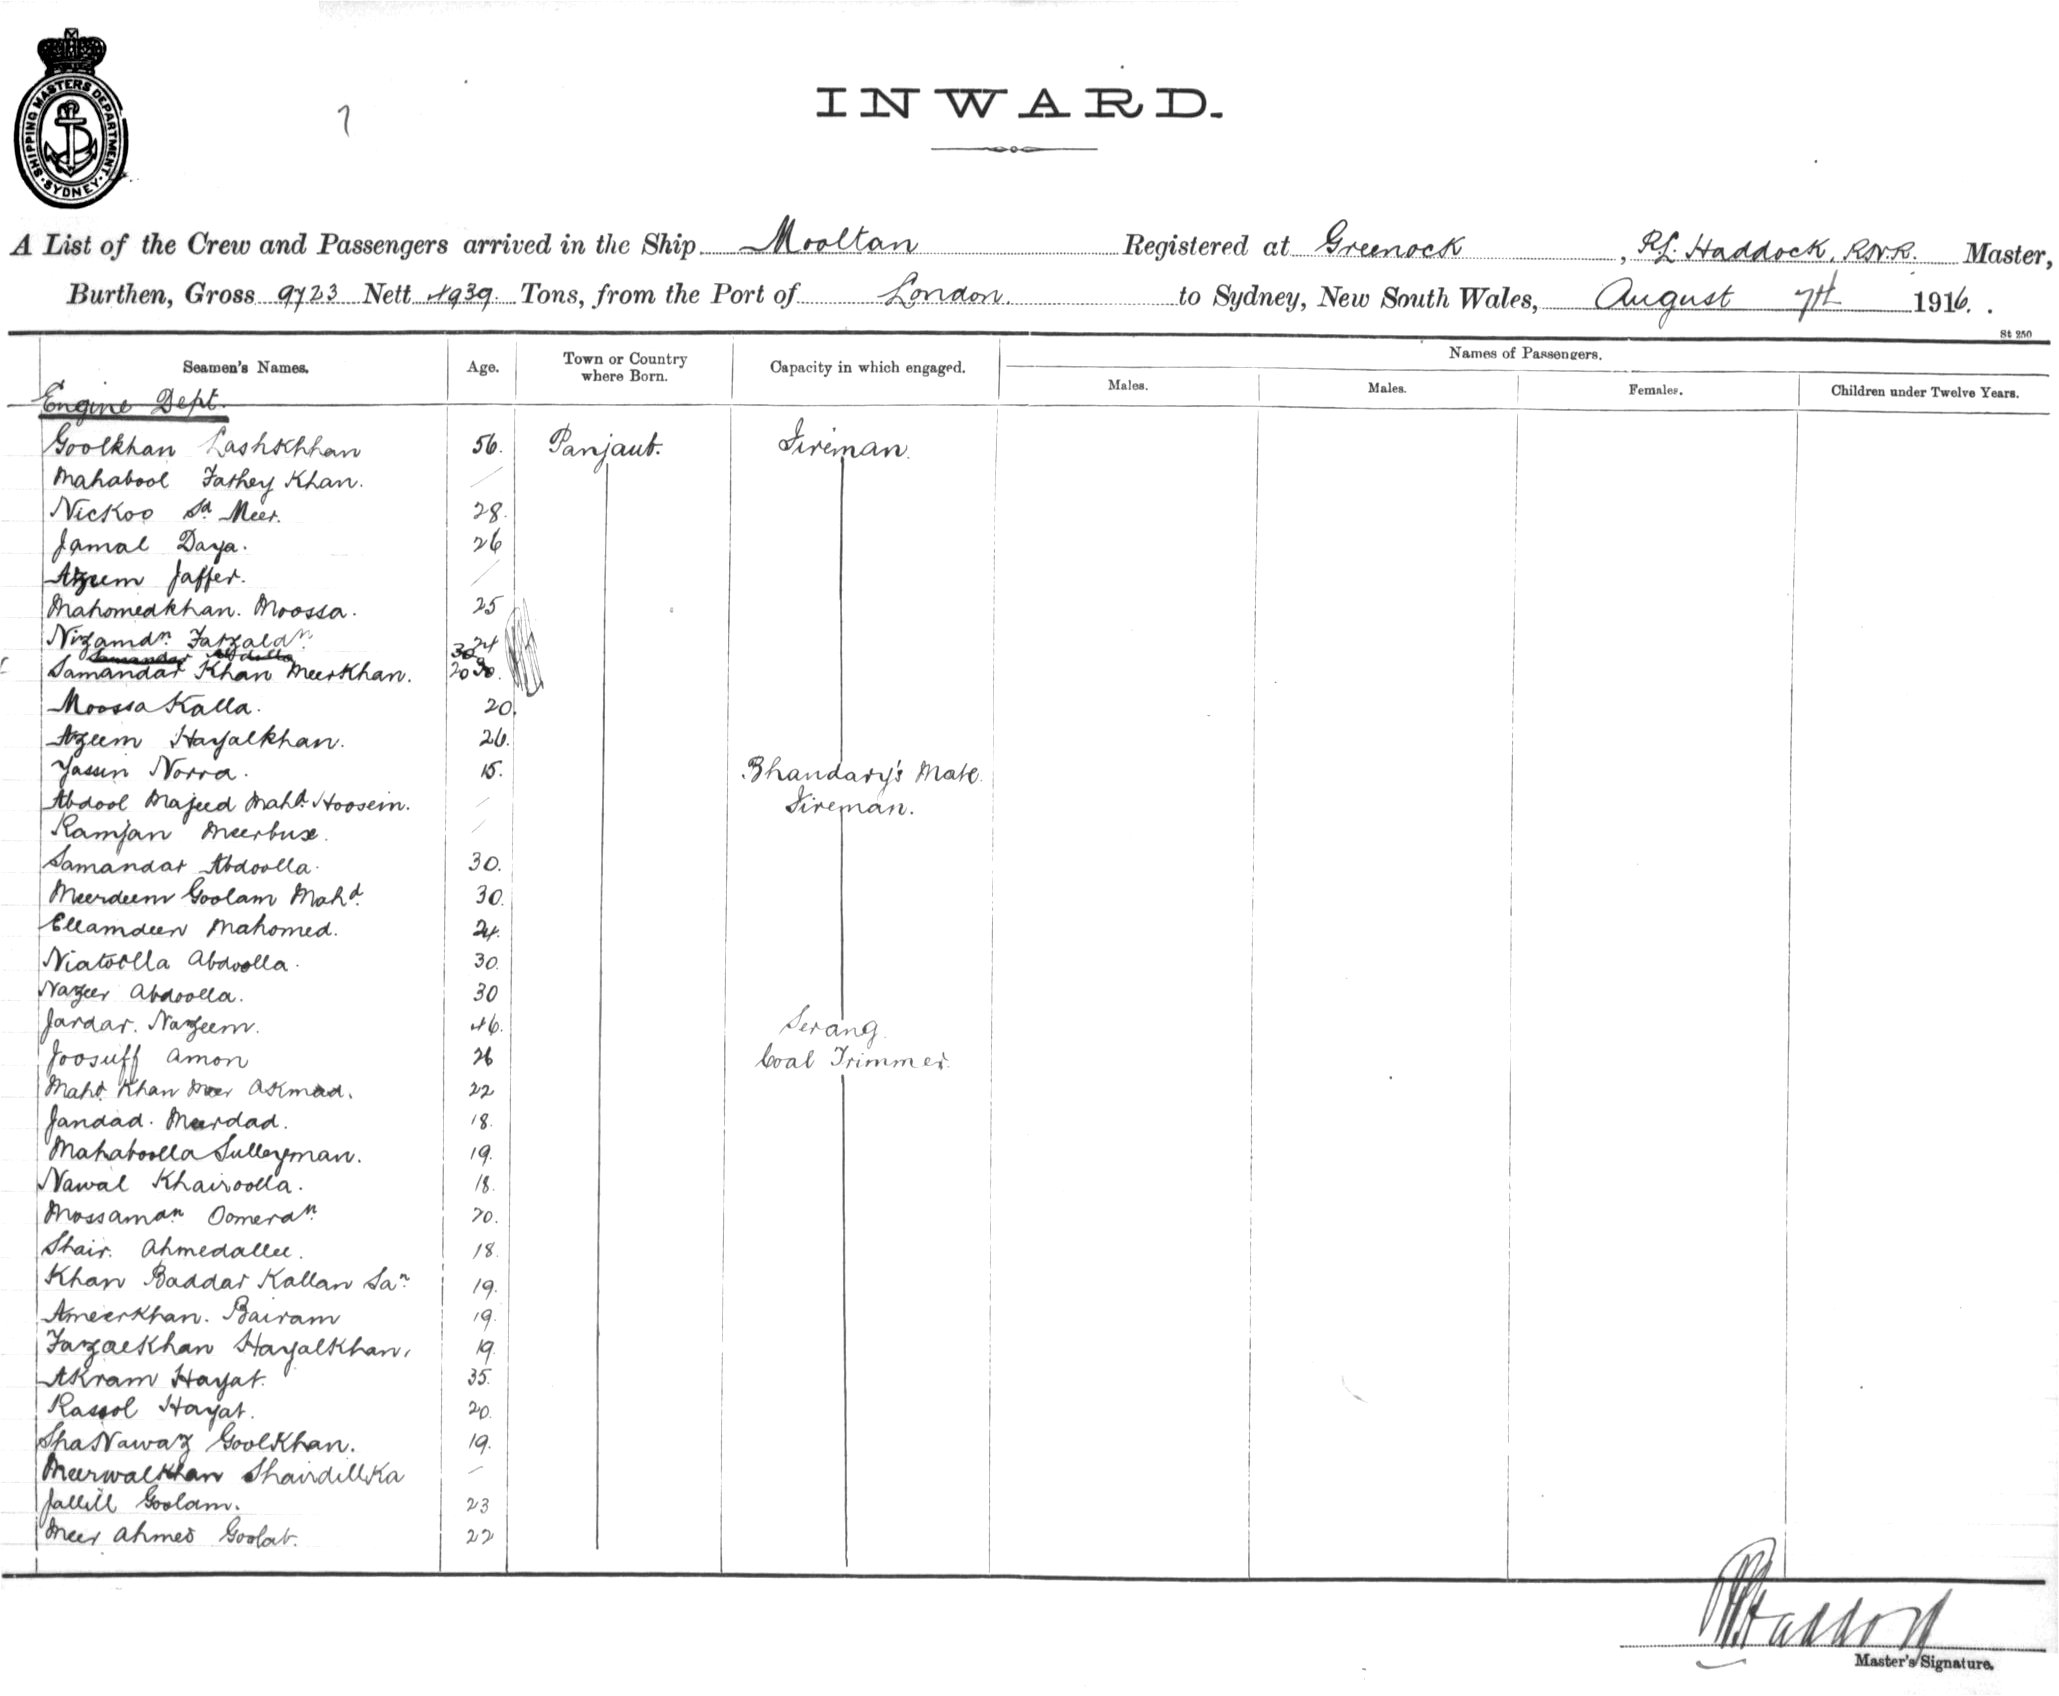 SHIPPING MASTERS DEPARTMENT
SYDNEY
7
INWARD.
A List of the Crew and Passengers arrived in the Ship Mooltan Registered at Greenock, R.L. Haddock, R.N.R. Master,
Burthen, Gross 9723 Nett 4939 Tons, from the Port of London to Sydney, New South Wales, August 7th 1916.
St 250
Seamen's Names. Age. Town or Country where Born. Capacity in which engaged. Names of Passengers.
Males. Males. Females. Children under Twelve Years.
Engine Dept.
Goolkhan Lashkhhan 56. Panjaub. Fireman.
Mahabool Fathey Khan.
Nickoo Sd. Meer. 28.
Jamal Daya. 26
Azeem Jaffer.
Mahomedkhan. Moossa. 25
Nizamdn. Fazaldn. 24
Samandar Abdulla 30
Samandar Khan Meerkhan. 20
Moossa Kalla. 20.
Azeem Hayalkhan. 26.
Yassin Norra. 15. Bhandary's Mate.
Abdool Majeed Mahd. Hoosein. Fireman.
Ramjan Meerbux.
Samandar Abdoolla. 30.
Meerdeem Goolam Mahd. 30.
Ellamdeen Mahomed. 24.
Niatoolla Abdoolla. 30.
Nazeer Abdoolla. 30
Jardar. Nazeem. 46. Serang.
Joosuff Amon 26 Coal Trimmer.
Mahd. Khan Meer Akmad. 22
Jandad. Meerdad. 18.
Mahaboolla Sulleyman. 19.
Nawal Khairoolla. 18.
Mossamdn. Oomerdn. 20.
Shair. Ahmedallee. 18.
Khan Baddar Kallan San. 19.
Ameerkhan. Bairam 19.
Fazaekhan Hayalkhan. 19.
Akram Hayat. 35.
Rassol Hayat. 20.
Sha Nawaz Goolkhan. 19.
Meerwalkhan Shairdillka
Jallill Goolam. 23
Meer Ahmed Goolab. 22
R L Haddock
Master's Signature.